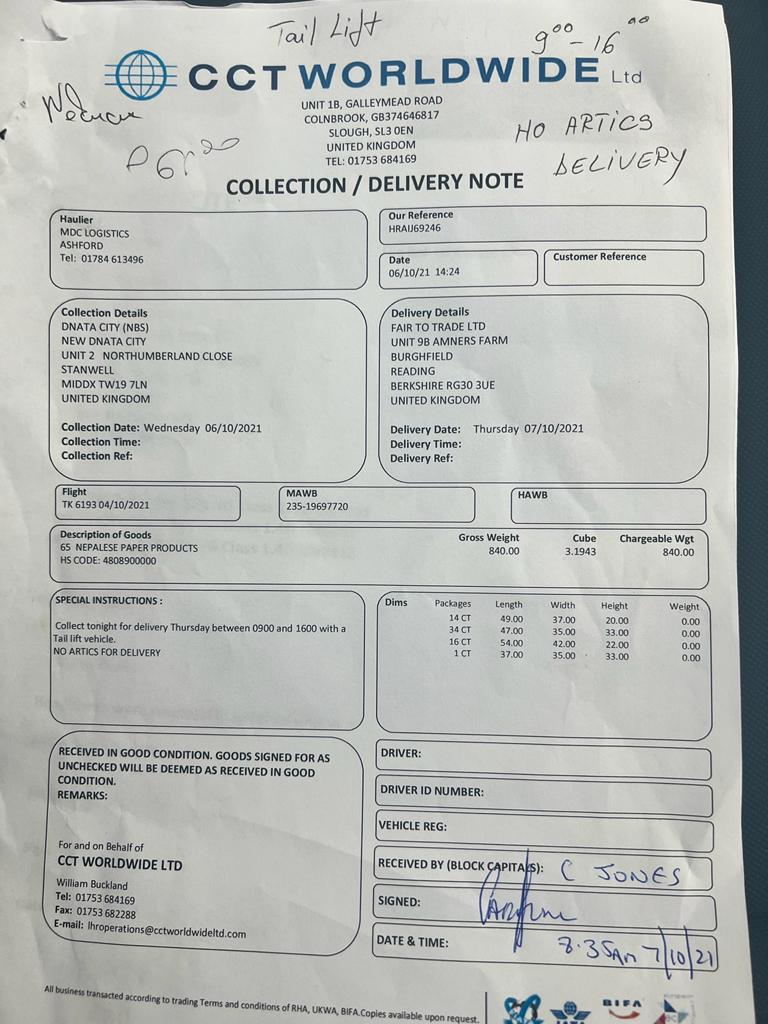 Tail Lift
9⁰⁰ - 16⁰⁰
CCT WORLDWIDE Ltd
UNIT 1B, GALLEYMEAD ROAD
COLNBROOK, GB374646817
SLOUGH, SL3 0EN
UNITED KINGDOM
TEL: 01753 684169
NO ARTICS
DELIVERY
COLLECTION / DELIVERY NOTE
Haulier
MDC LOGISTICS
ASHFORD
Tel: 01784 613496
Our Reference
HRAIJ69246
Date
06/10/21 14:24
Customer Reference
Collection Details
DNATA CITY (NBS)
NEW DNATA CITY
UNIT 2 NORTHUMBERLAND CLOSE
STANWELL
MIDDX TW19 7LN
UNITED KINGDOM
Collection Date: Wednesday 06/10/2021
Collection Time:
Collection Ref:
Delivery Details
FAIR TO TRADE LTD
UNIT 9B AMNERS FARM
BURGHFIELD
READING
BERKSHIRE RG30 3UE
UNITED KINGDOM
Delivery Date: Thursday 07/10/2021
Delivery Time:
Delivery Ref:
Flight
TK 6193 04/10/2021
MAWB
235-19697720
HAWB
Description of Goods Gross Weight Cube Chargeable Wgt
65 NEPALESE PAPER PRODUCTS 840.00 3.1943 840.00
HS CODE: 4808900000
SPECIAL INSTRUCTIONS :
Collect tonight for delivery Thursday between 0900 and 1600 with a
Tail lift vehicle.
NO ARTICS FOR DELIVERY
Dims Packages Length Width Height Weight
14 CT 49.00 37.00 20.00 0.00
34 CT 47.00 35.00 33.00 0.00
16 CT 54.00 42.00 22.00 0.00
1 CT 37.00 35.00 33.00 0.00
RECEIVED IN GOOD CONDITION. GOODS SIGNED FOR AS
UNCHECKED WILL BE DEEMED AS RECEIVED IN GOOD
CONDITION.
REMARKS:
For and on Behalf of
CCT WORLDWIDE LTD
William Buckland
Tel: 01753 684169
Fax: 01753 682288
E-mail: lhroperations@cctworldwideltd.com
DRIVER:
DRIVER ID NUMBER:
VEHICLE REG:
RECEIVED BY (BLOCK CAPITALS): C JONES
SIGNED:
DATE & TIME: 8.35AM 7/10/21
All business transacted according to trading Terms and conditions of RHA, UKWA, BIFA.Copies available upon request.
BIFA